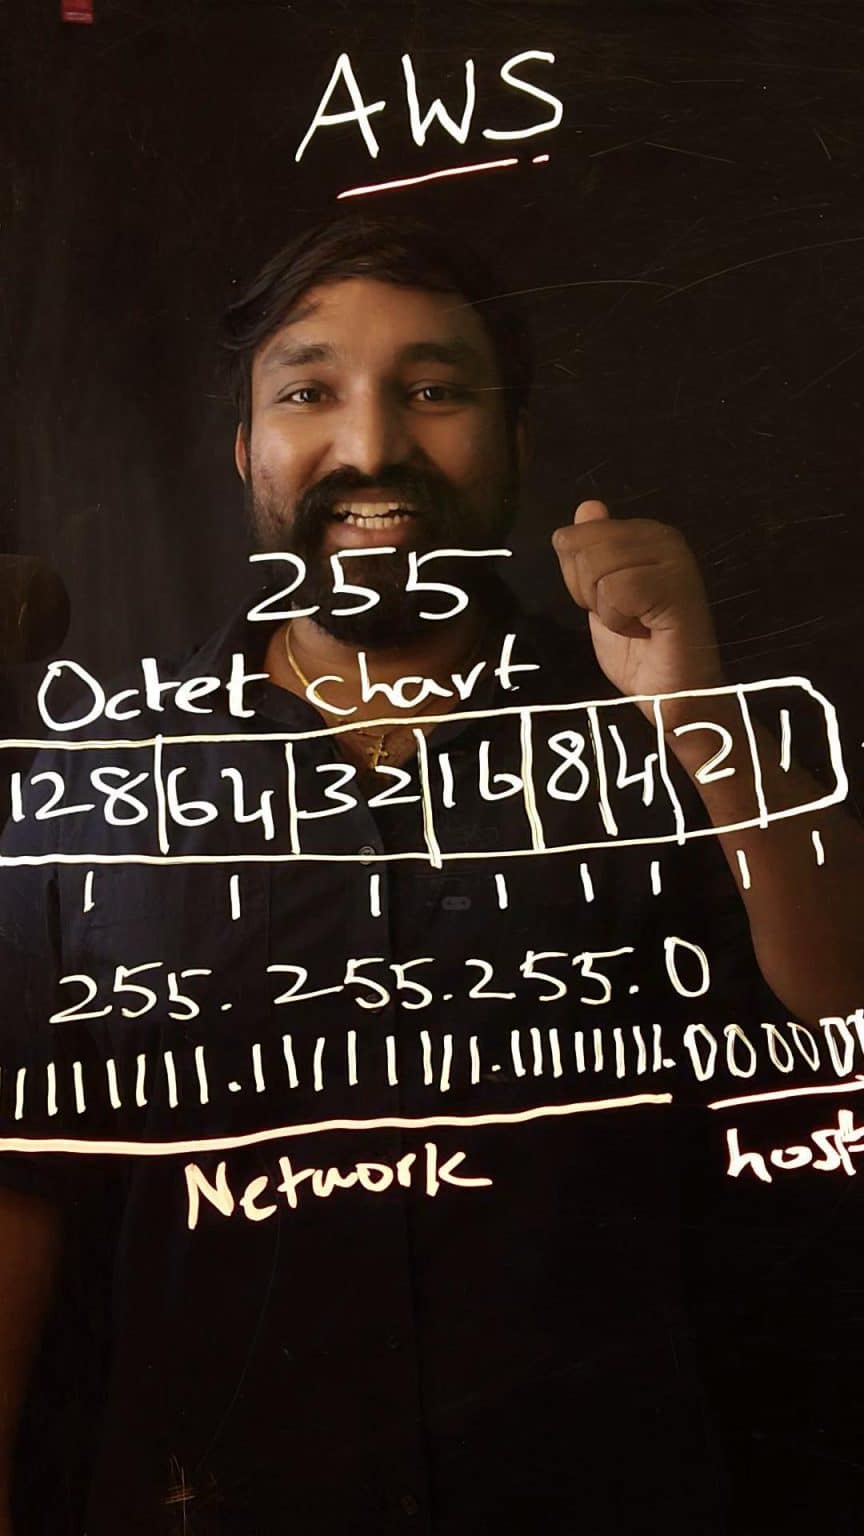 AWS
255
Octet chart
128 64 32 16 8 4 2 1
1 1 1 1 1 1 1 1
255.255.255.0
Network
host